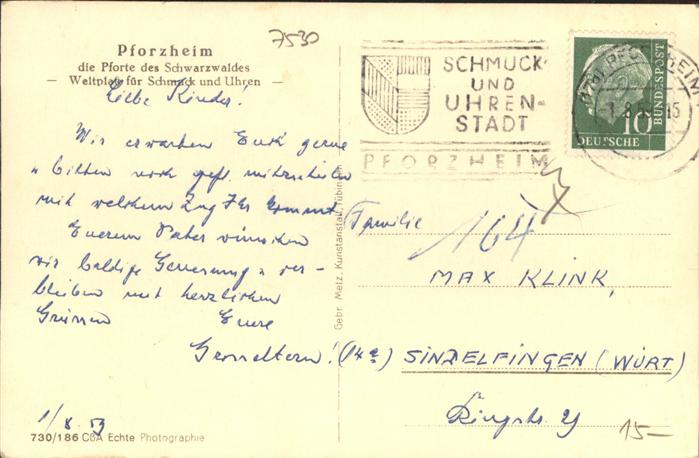 7530
Pforzheim
die Pforte des Schwarzwaldes
— Weltplatz für Schmuck und Uhren —
Liebe Kinder.
Wir erwarten Euch gerne
u bitten noch gefl. mitzuteilen
mit welchem Zug Ihr kommt.
Euerem Vater wünschen
wir baldige Genesung u ver-
bleiben mit herzlichen
Grüssen Euere
Grosseltern!
1/8.59
730/186 CBA Echte Photographie
Gebr. Metz, Kunstanstalt, Tübingen
SCHMUCK-
UND
UHREN-
STADT
PFORZHEIM
10
DEUTSCHE
BUNDESPOST
Familie
164
MAX KLINK,
(14a) SINDELFINGEN (WÜRT)
Ringstr. 29
15—